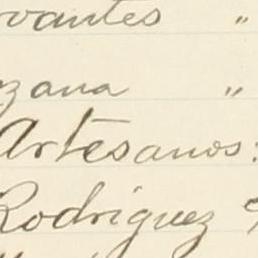 rvantes "
zana "
Artesanos:
Rodriguez